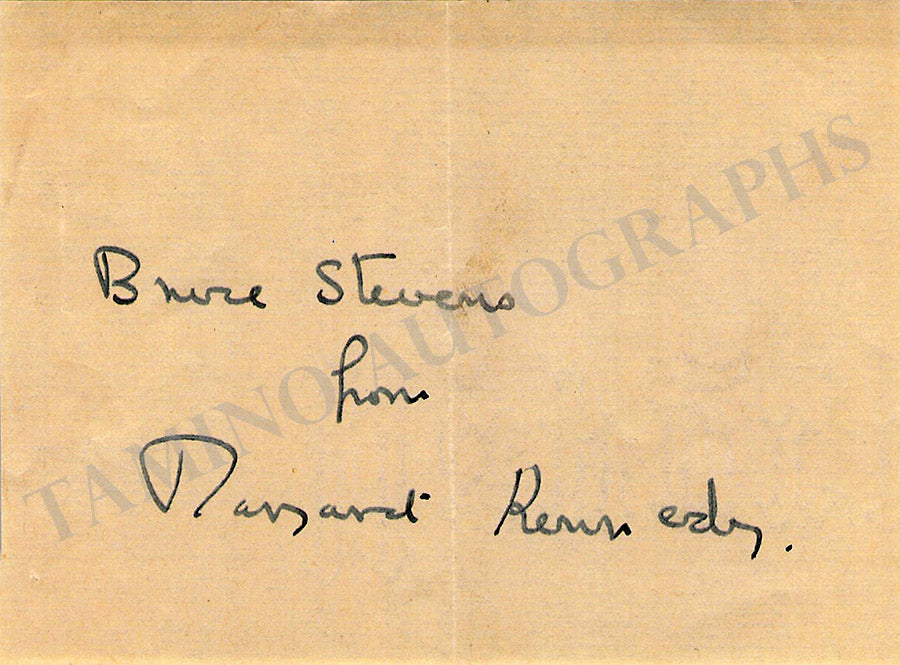 Bruce Stevens
from
Margaret Kennedy.
TAMINO AUTOGRAPHS